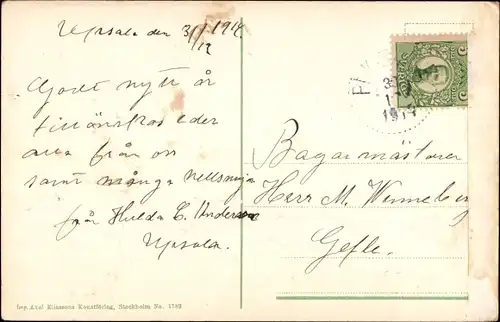 Upsala den 31/12 1914
Godt nytt år
tillönskas eder
alla från oss
samt många
från Hulda C. Anderson
Upsala.
Bagarmästaren
Herr M. Wennberg
Gefle.
1914
Imp. Axel Eliassons Konstförlag, Stockholm No. 1782